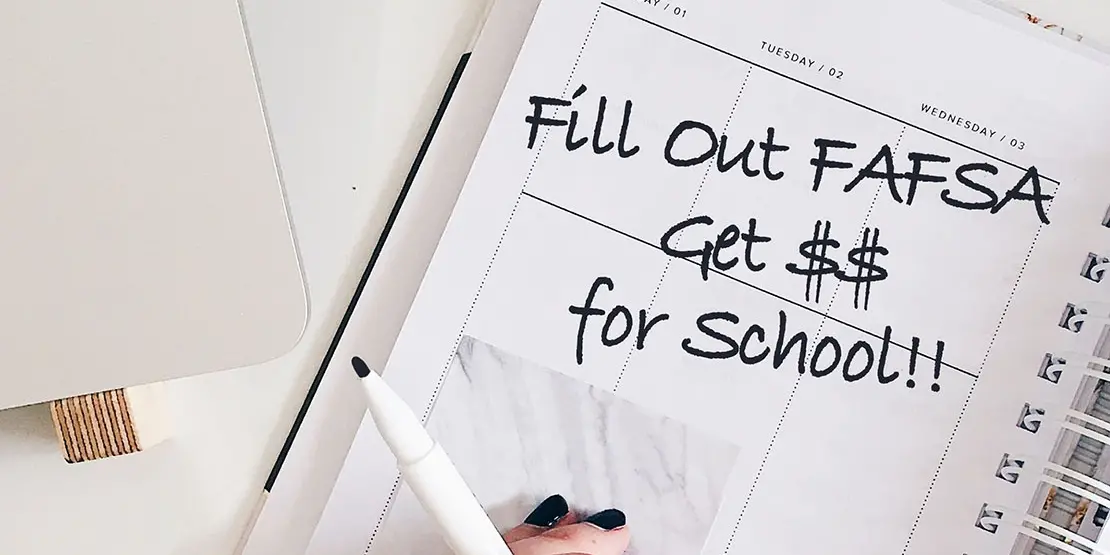 AY / 01
TUESDAY / 02
WEDNESDAY / 03
Fill Out FAFSA
Get $$
for School!!